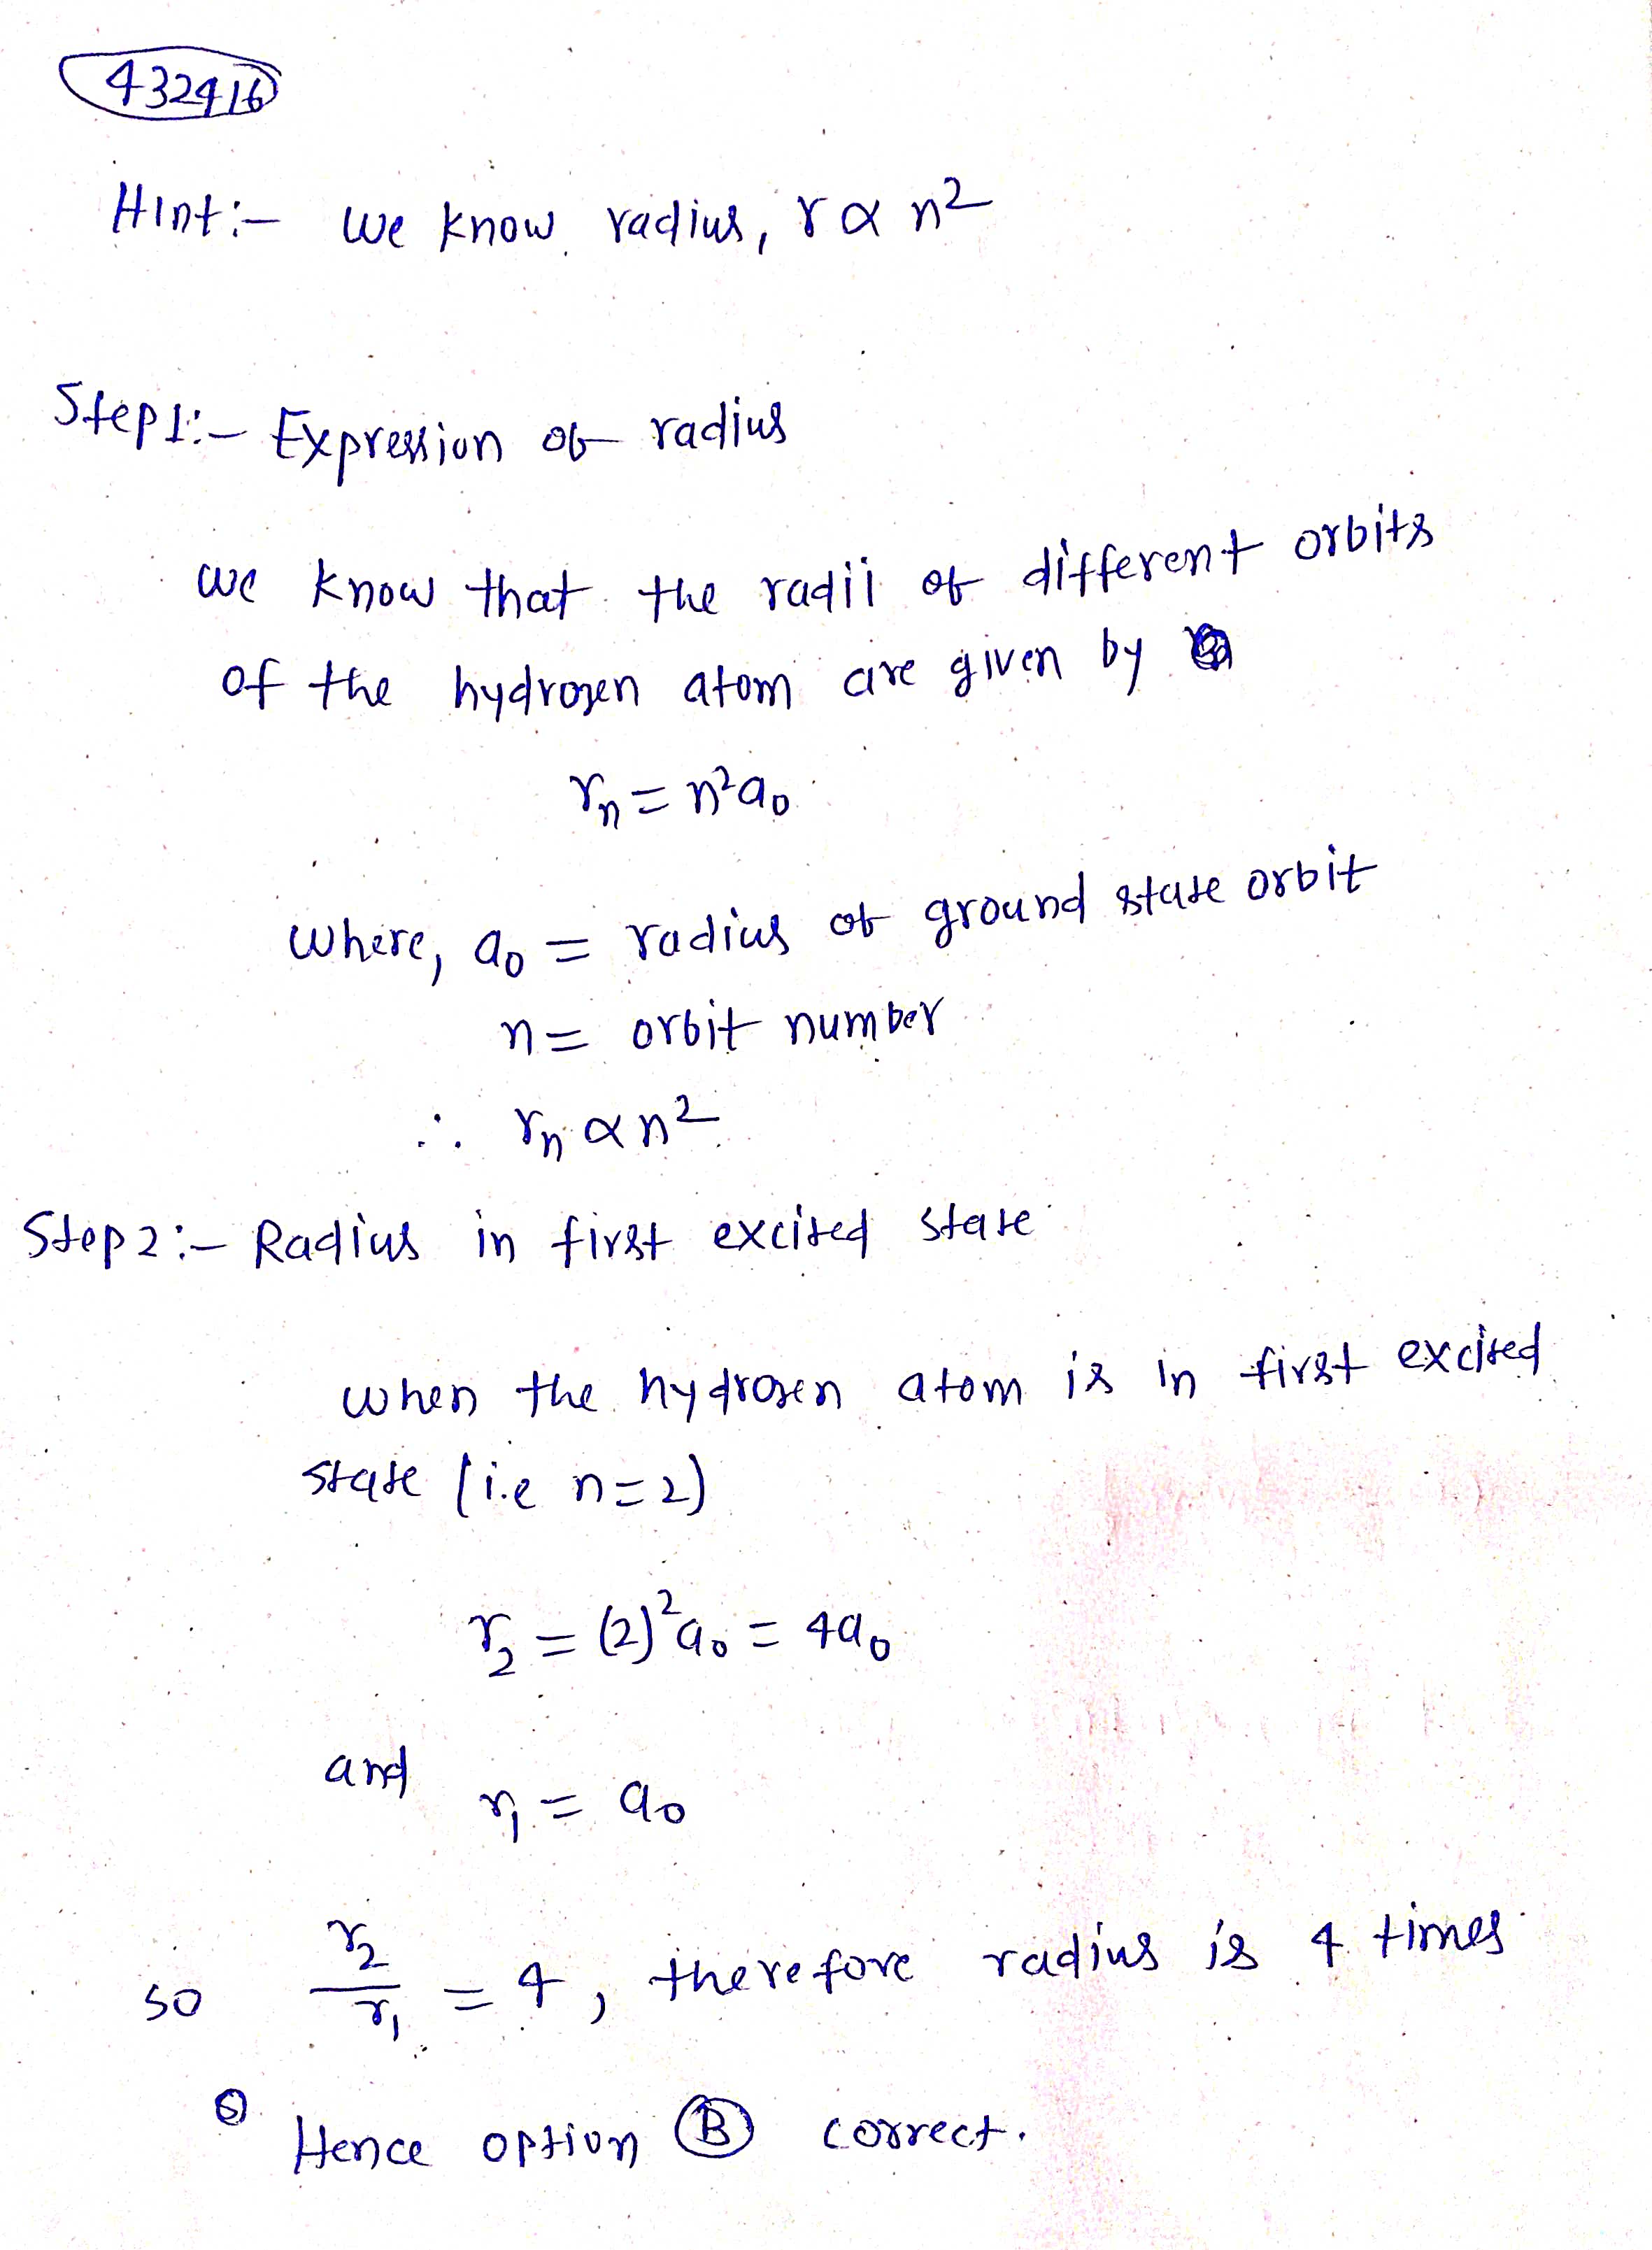 432416
Hint:- we know radius, r ∝ n²
Step 1:- Expression of radius
we know that the radii of different orbits
of the hydrogen atom are given by
rₙ = n²a₀
where, a₀ = radius of ground state orbit
n = orbit number
∴ rₙ ∝ n²
Step 2:- Radius in first excited state
when the hydrogen atom is in first excited
state (i.e n=2)
r₂ = (2)²a₀ = 4a₀
and r₁ = a₀
so r₂/r₁ = 4, therefore radius is 4 times
Hence option B correct.